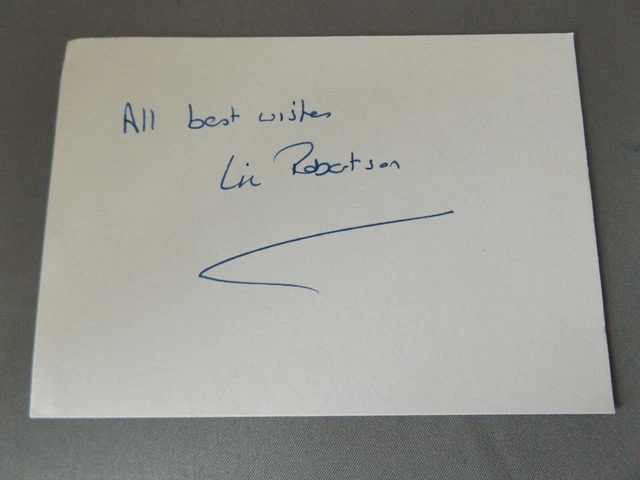 All best wishes
Liz Robertson